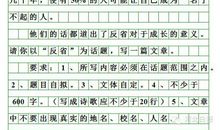 几十年，没有90%的人可能让自己成为一名了
不起的人。
他们的话都讲出了反省对于成长的意义。
请你以“反省”为话题，写一篇文章。
要求：1、所写内容必须在话题范围之内。
2、题目自拟。3、文体自定。4、不少于
600字。（写成诗歌应不少于20行）5、文章
中不要出现真实的地名、校名、人名。